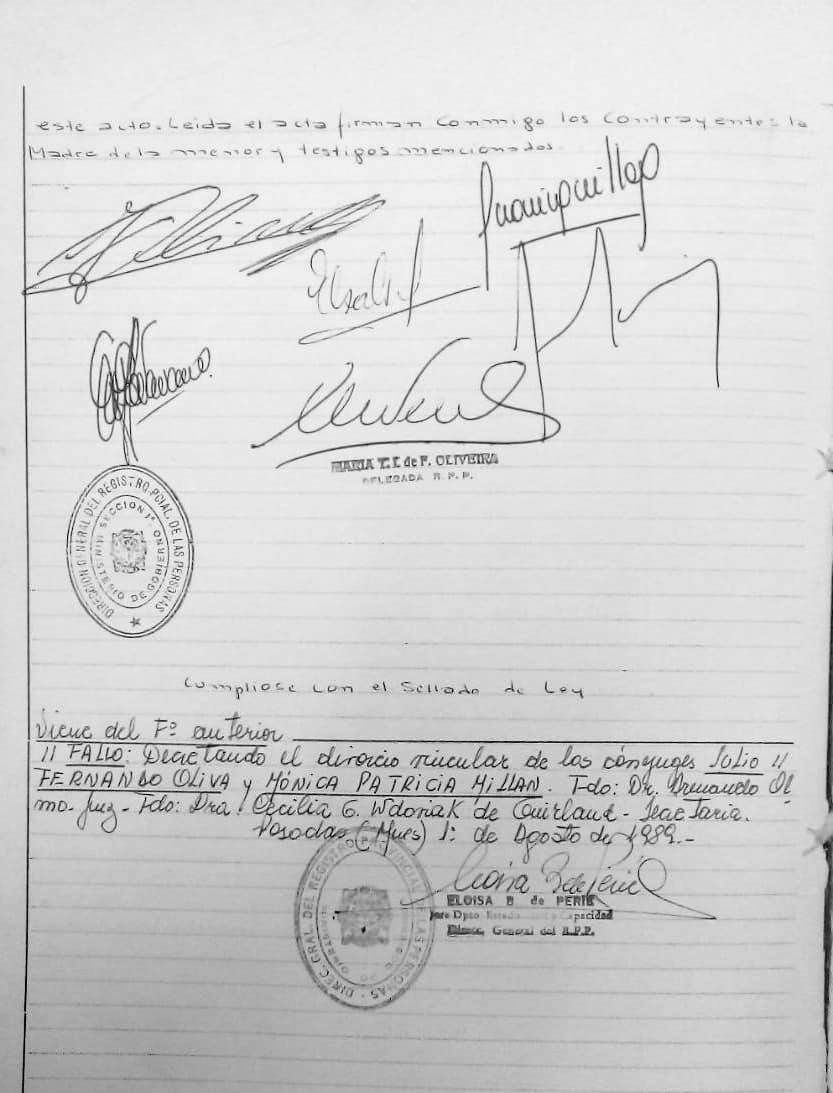 este acto. Leida el acta firman conmigo los contrayentes la
Madre de la menor y testigos mencionados.
MARIA T. I. de F. OLIVEIRA
DELEGADA R. P. P.
DIRECCION GENERAL DEL REGISTRO PCIAL. DE LAS PERSONAS
SECCION 1ª
MINISTERIO DE GOBIERNO
Cumpliose con el Sellado de Ley
Viene del Fº anterior
// FALLO: Decretando el divorcio vincular de los cónyuges JULIO //
FERNANDO OLIVA y MÓNICA PATRICIA MILLAN. Fdo: Dr. Armando Ol
mo. Juez - Fdo: Dra. Cecilia G. Wdoviak de Guirland - Secretaria.
Posadas (Mnes) 1: de Agosto de 1989.-
DIREC. GRAL. DEL REGISTRO PROVINCIAL DE LAS PERSONAS
ELOISA B. de PERIE
Jefe Dpto. Estado y Capacidad
General del R.P.P.